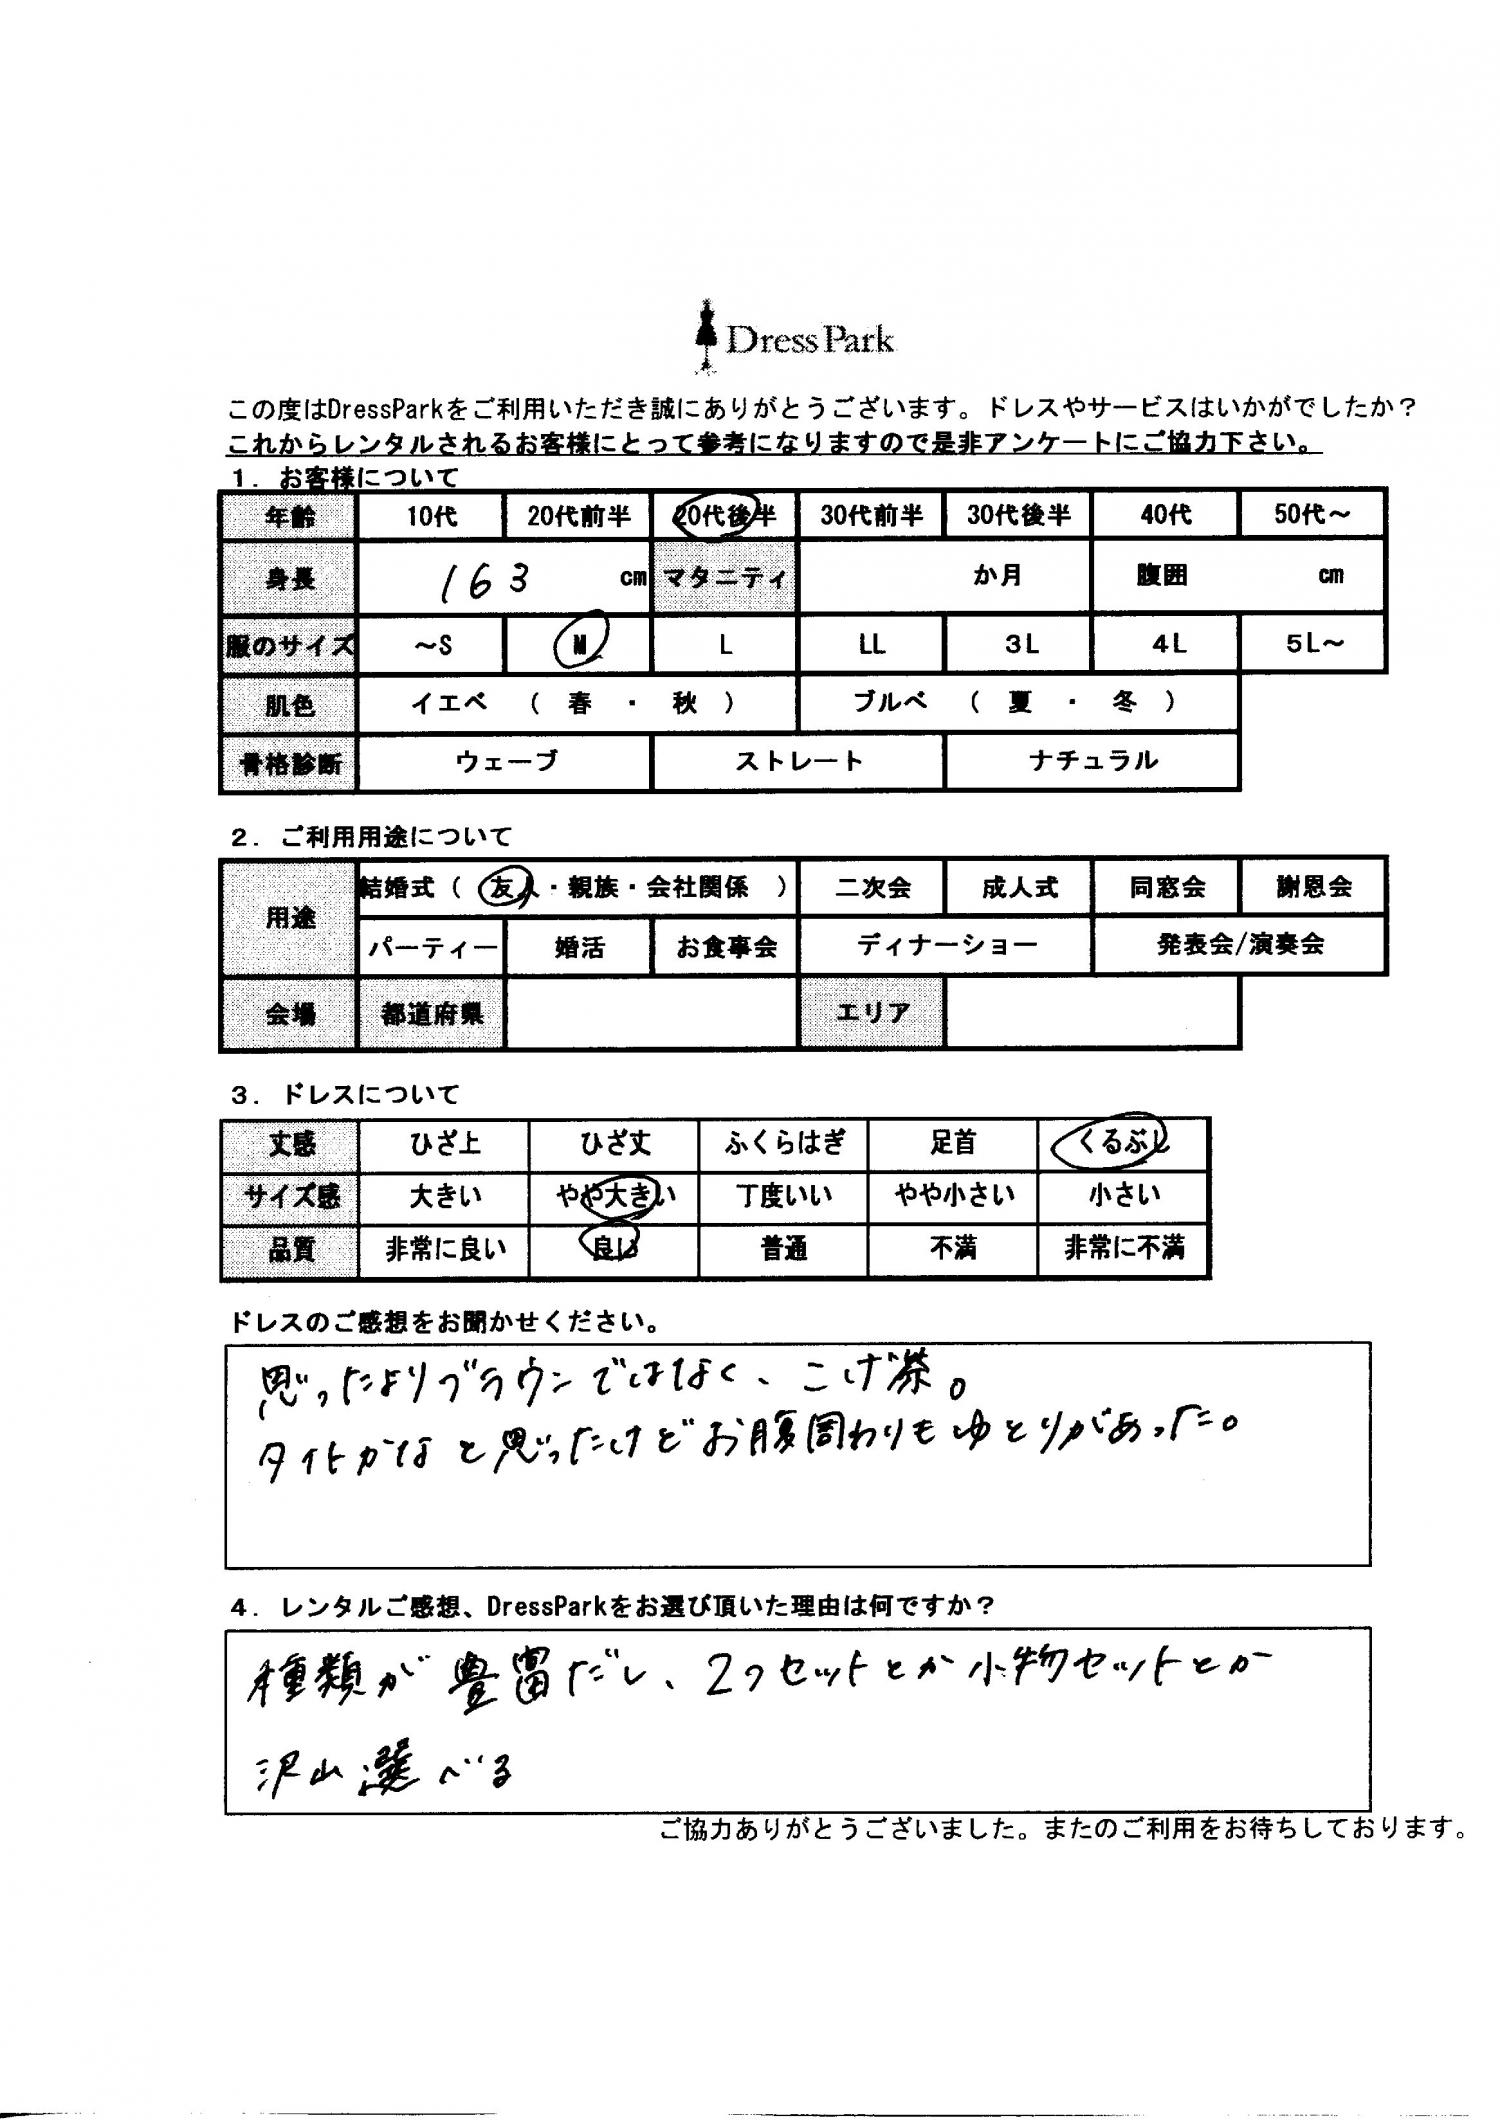 Dress Park
この度はDressParkをご利用いただき誠にありがとうございます。ドレスやサービスはいかがでしたか？
これからレンタルされるお客様にとって参考になりますので是非アンケートにご協力下さい。
1. お客様について
年齢 10代 20代前半 20代後半 30代前半 30代後半 40代 50代～
身長 163 cm マタニティ か月 腹囲 cm
服のサイズ ～S M L LL 3L 4L 5L～
肌色 イエベ （ 春 ・ 秋 ） ブルベ （ 夏 ・ 冬 ）
骨格診断 ウェーブ ストレート ナチュラル
2. ご利用用途について
用途 結婚式（ 友人・親族・会社関係 ） 二次会 成人式 同窓会 謝恩会
パーティー 婚活 お食事会 ディナーショー 発表会/演奏会
会場 都道府県 エリア
3. ドレスについて
丈感 ひざ上 ひざ丈 ふくらはぎ 足首 くるぶし
サイズ感 大きい やや大きい 丁度いい やや小さい 小さい
品質 非常に良い 良い 普通 不満 非常に不満
ドレスのご感想をお聞かせください。
思ったよりブラウンではなく、こげ茶。
タイトかなと思ったけどお腹周わりもゆとりがあった。
4. レンタルご感想、DressParkをお選び頂いた理由は何ですか？
種類が豊富だし、2つセットとか小物セットとか
沢山選べる
ご協力ありがとうございました。またのご利用をお待ちしております。